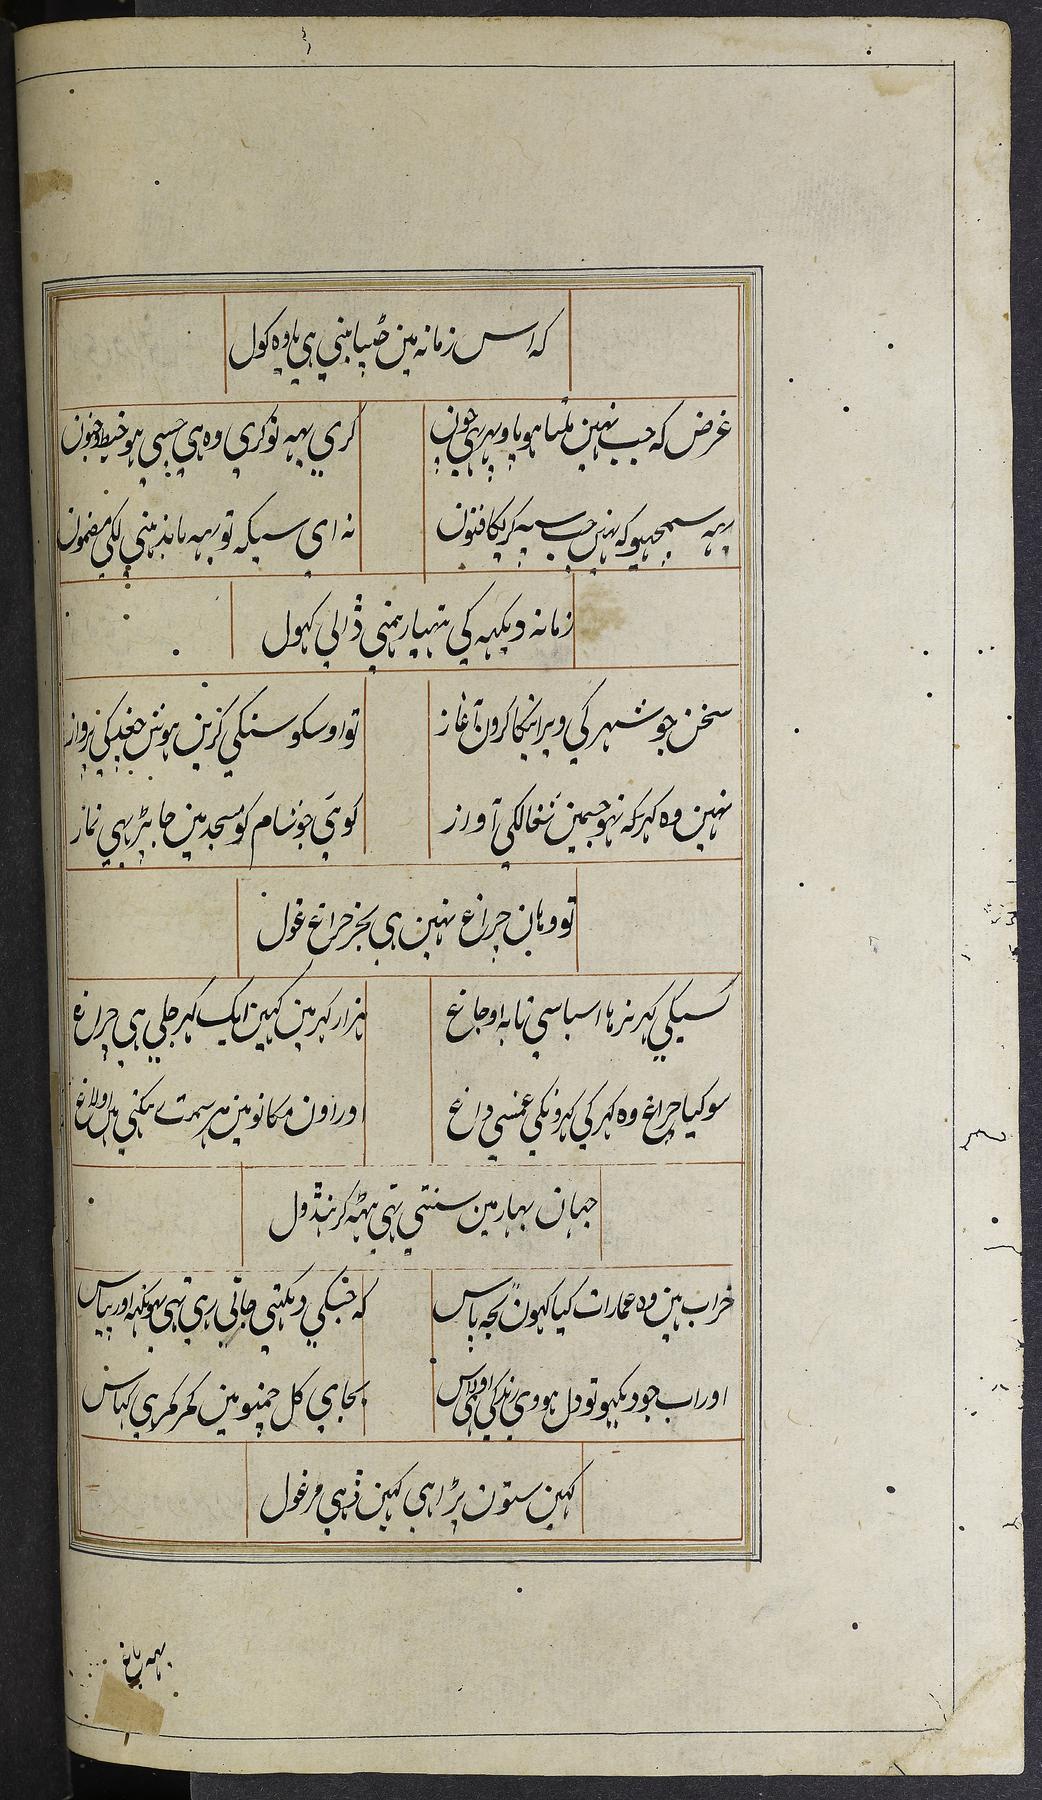 کہ اس زمانہ مین چہپا بنی ہی یا وہ کول
غرض کہ جب نہین ملتا ہو پاو بہری چون
کری یہہ نوکری وہ ہی جسی ہو خبط و جنون
یہہ سمجہیو کہ نہین جب سپہ کریکا فنون
نہ ای سیکہ تو یہہ باندہنی لکی مضمون
زمانہ دیکہہ کی ہتہیار ہمنی ڈالی کہول
سخن جو شہر کی ویرانیکا کرون آغاز
تو اوسکو سنکی کرین ہوش جغد کی پرواز
نہین وہ کہر کہ نہو جسمین شغالکی آواز
کوئی جو شام کو مسجد مین جا پڑہی نماز
تو وہان چراغ نہین ہی بجز چراغ غول
کسیکی کہر نرہا اسیا سی تا بہ اوجاغ
ہزار کہر مین کہین ایک کہر جلی ہی چراغ
سو کیا چراغ وہ کہر کی کہرونکی غمسی داغ
اور اون مکانو مین ہر سمت رینکتی ہین اولاغ
جہان بہار مین سنتی تہی بیٹہہ کر ہنڈول
خراب ہین وہ عمارات کیا کہون تجہ پاس
کہ جنکی دیکہتی جاتی رہی تہی بہونکہہ اور پیاس
اور اب جو دیکہیو تو دل ہووی زندکی سی اوداس
بجای کل چمنو مین کمر کمر ہی کہاس
کہین ستون پڑا ہی کہین ڈہی مرغول
یہہ باغ